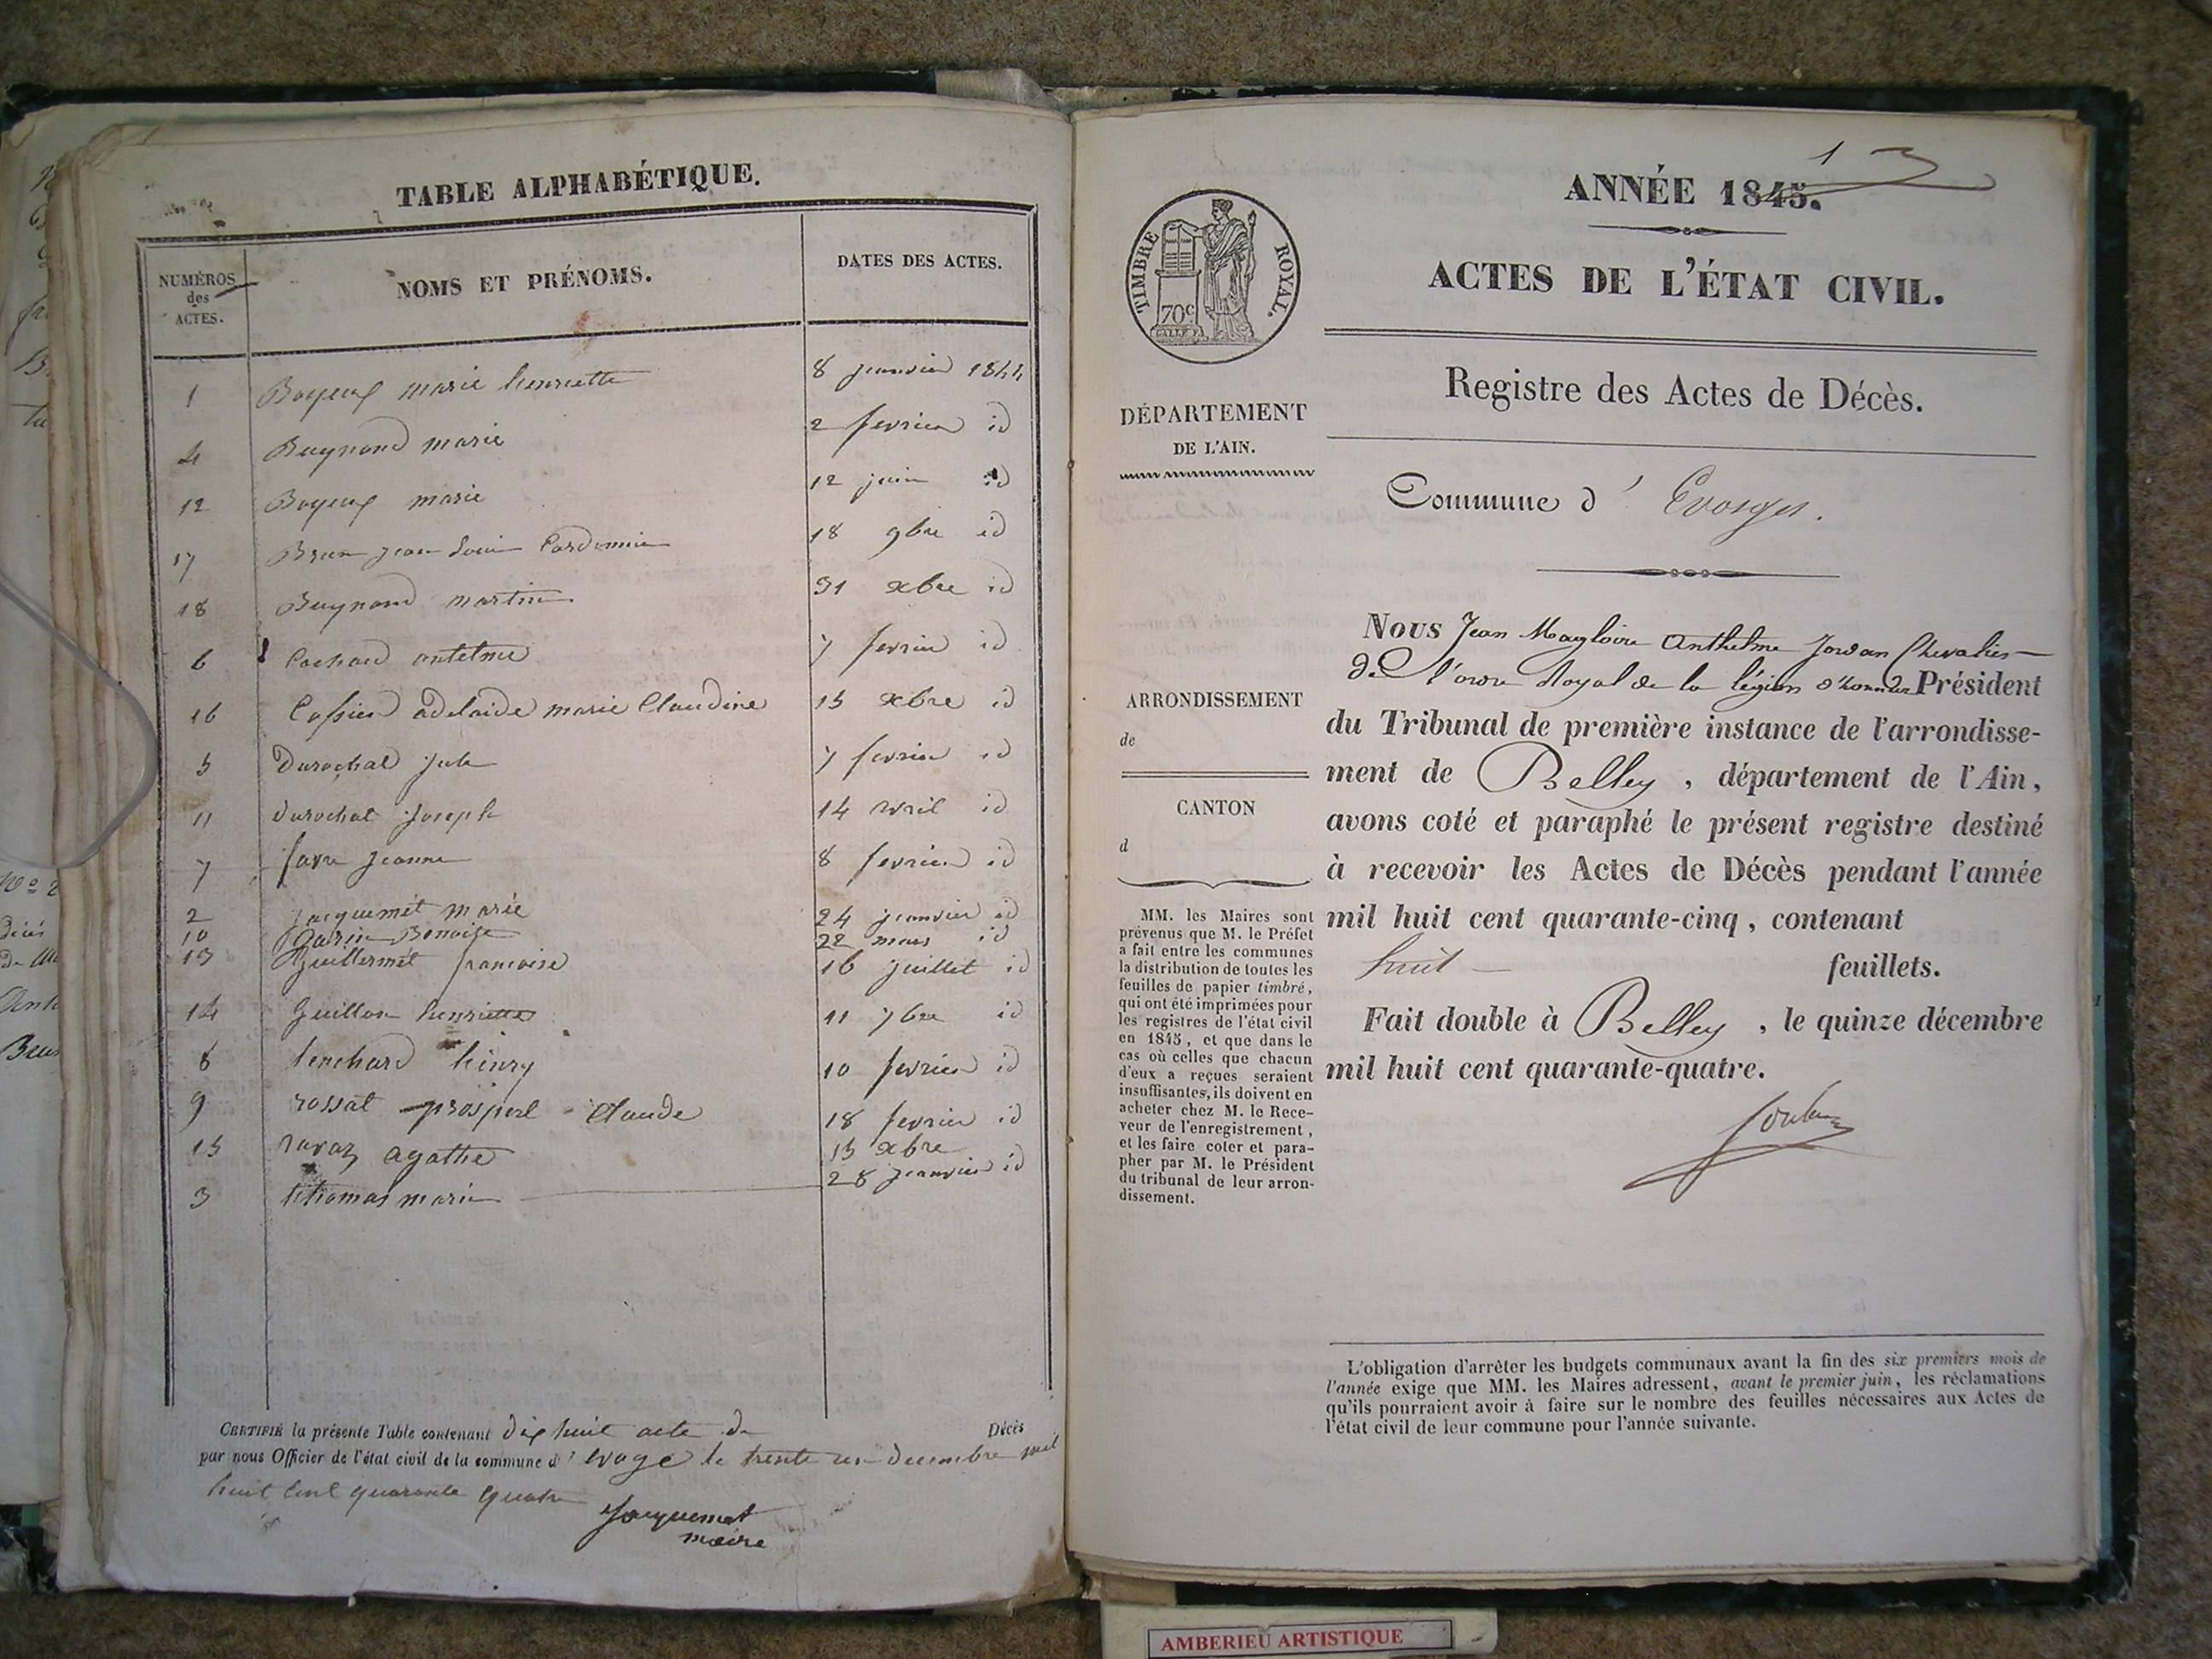 TABLE ALPHABÉTIQUE.
NUMÉROS des ACTES.
NOMS ET PRÉNOMS.
DATES DES ACTES.
1 Boyeux marie henriette 8 janvier 1844
4 Buynand marie 2 fevrier id
12 Boyeux marie 12 juin id
17 Brun jean Louis 18 9bre id
18 Buynand martin 31 xbre id
6 Cochard antelme 7 fevrier id
16 Cassier adelaide marie Claudine 15 xbre id
5 Durochat jule 7 fevrier id
11 durochat joseph 14 avril id
7 favre jeanne 8 fevrier id
2 jacquemet marie 24 janvier id
10 Garin Benoite 22 mars id
13 Guillermet francoise 16 juillet id
14 Guillon henriette 11 7bre id
8 henry 10 fevrier id
9 rossat prosperl Claude 18 fevrier id
15 ravaz agathe 15 xbre
3 thomas marie 28 janvier id
CERTIFIÉ la présente Table contenant dix huit acte de Décès
par nous Officier de l'état civil de la commune d' evoge le trente un decembre mil
huit cent quarante quatre
Jacquemet
maire
1
ANNÉE 1845.
ACTES DE L'ÉTAT CIVIL.
TIMBRE ROYAL.
70c
Registre des Actes de Décès.
DÉPARTEMENT
DE L'AIN.
Commune d' Evosges.
ARRONDISSEMENT
de
CANTON
d
MM. les Maires sont
prévenus que M. le Préfet
a fait entre les communes
la distribution de toutes les
feuilles de papier timbré,
qui ont été imprimées pour
les registres de l'état civil
en 1845, et que dans le
cas où celles que chacun
d'eux a reçues seraient
insuffisantes, ils doivent en
acheter chez M. le Rece-
veur de l'enregistrement,
et les faire coter et para-
pher par M. le Président
du tribunal de leur arron-
dissement.
Nous Jean Magloire Anthelme Jordan Chevalier
de l'ordre Royal de la légion d'honneur Président
du Tribunal de première instance de l'arrondisse-
ment de Belley, département de l'Ain,
avons coté et paraphé le présent registre destiné
à recevoir les Actes de Décès pendant l'année
mil huit cent quarante-cinq, contenant
huit feuillets.
Fait double à Belley, le quinze décembre
mil huit cent quarante-quatre.
L'obligation d'arrêter les budgets communaux avant la fin des six premiers mois de
l'année exige que MM. les Maires adressent, avant le premier juin, les réclamations
qu'ils pourraient avoir à faire sur le nombre des feuilles nécessaires aux Actes de
l'état civil de leur commune pour l'année suivante.
AMBERIEU ARTISTIQUE